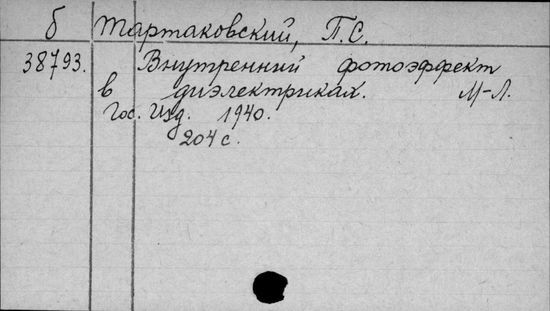 б Тартаковский, П.С.
38793. Внутренний фотоэффект
в диэлектриках. М-Л.
Гос. Изд. 1940.
204 с.